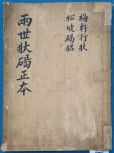 梅軒行狀
松坡碣銘
兩世狀碣正本